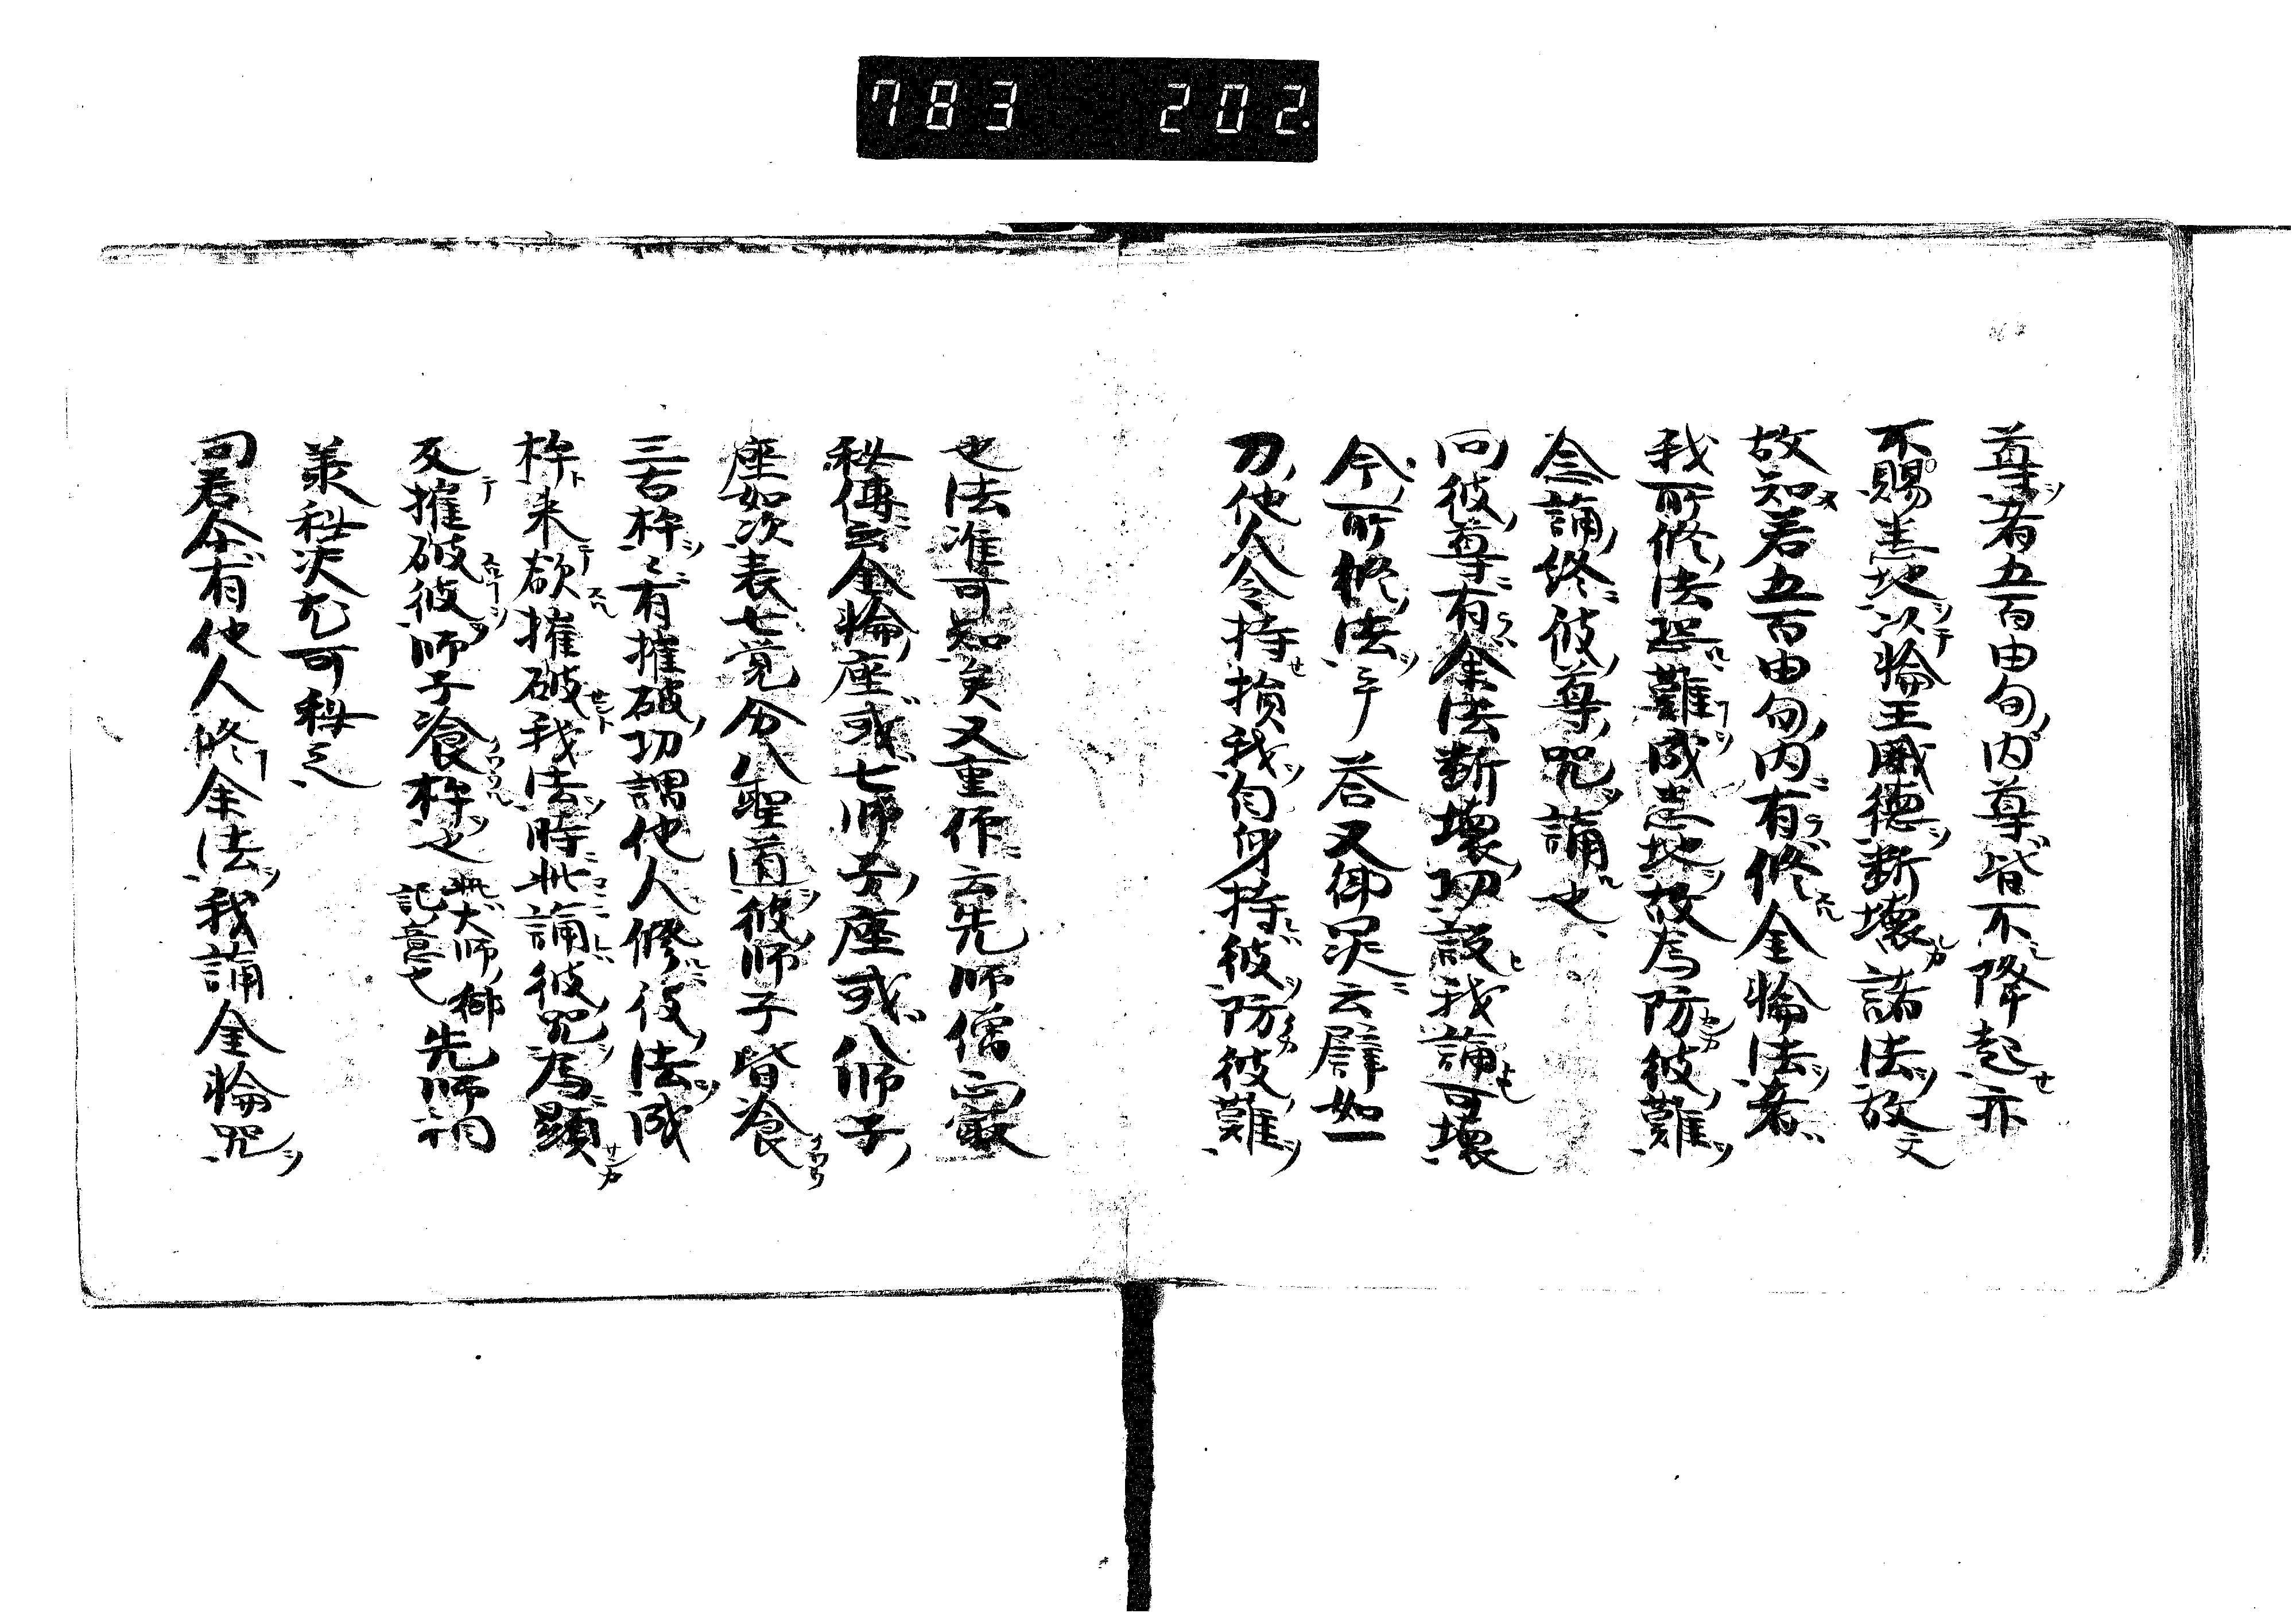 783 202
尊者五百由旬内尊皆不降起亦
不賜悉地以輪王威徳断壊諸法故文
故知若五百由旬内有修金輪法者
我所修法恐難成悉地故為防彼難
念誦終彼尊咒誦之
問彼尊有余法断壊功設我誦可壊
今所修法乎 答又仰異云譬如一
刀他人令持損我自身持彼防彼難
也法准可知矣又重作云先師僧嚴
秘傳云金輪座或七師子座或八師子
座如次表七覚分八聖道彼師子皆飡
三古杵々有摧破功謂他人修彼法成
杵来欲摧破我法時此誦彼咒為顕
反摧破彼師子飡杵也 此大師御記意也 先師祠
義秘决尤可秘之
問若今有他人修余法我誦金輪咒